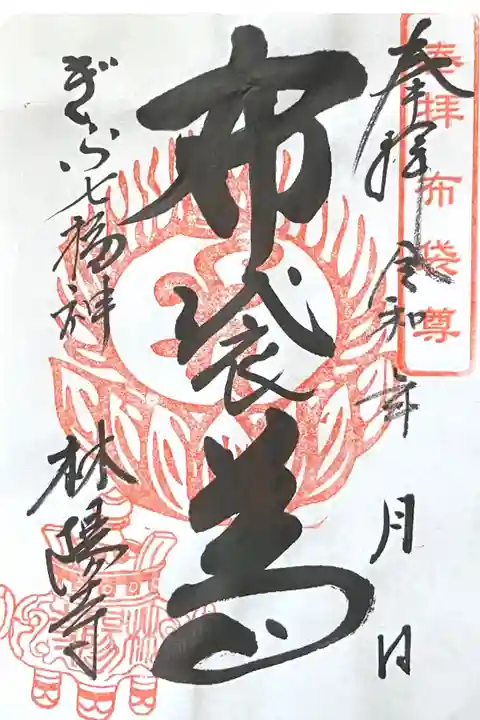 奉拝 布袋尊
奉拝 令和 年 月 日
布袋尊
ぎふ七福神
林陽寺